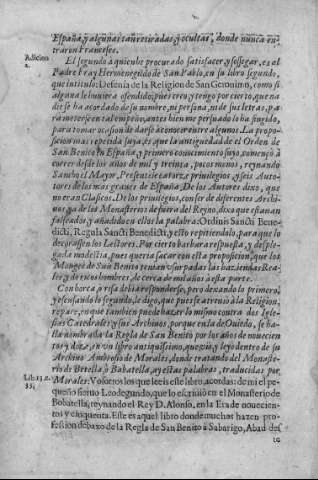 España, y algunas tan retiradas, y ocultas, donde nunca en-
traron Franceses.
Adicion
2.
El segundo à quien he procurado satisfacer, y sossegar, es al
Padre Fray Hermenegildo de San Pablo, en su libro segundo,
que intitula: Defensa de la Religion de San Geronimo, como si
alguna le huviera ofendido; pues creo, y tengo por cierto, que na-
die se ha acordado de su nombre, ni persona, ni de sus letras, pa-
ra meterse en tal empeño, antes bien me persuado le ha fingido,
para tomar ocasion de darse à conocer entre algunos. La propo-
sicion mas repetida suya, es que la antiguedad de el Orden de
San Benito en España, y primero conocimiento suyo, començò à
correr desde los años de mil y treinta, pocos menos, reynando
Sancho el Mayor. Presentèle catorze privilegios, y seis Auto-
tores de los mas graves de España. De los Autores dixo, que
no eran Clasicos. De los privilegios, con ser de diferentes Archi-
vos, y de los Monasterios de fuera del Reyno, dixo que estavan
falseados, y añadido en ellos la palabra: Ordinis Sancti Bene-
dicti, Regula Sancti Benedicti, y esto repitiendolo, para que lo
decorassen los Lectores. Por cierto barbara respuesta, y desple-
gada modestia, pues queria sacar con esta proposicion, que los
Monges de San Benito tenian usurpadas las haziendas Rea-
les, y de ricos hombres, de cerca de mil años à esta parte.
Con boca de risa debia responderse, pero dexando lo primero,
y esforçando lo segundo, le digo, que pues se atreviò à la Religion,
repare, en que tambien puede hazer lo mismo contra dos Igle-
sias Catedrales, y sus Archivos, porque en la de Oviedo, se ha-
lla nombrada la Regla de San Benito por los años de nuevecien-
tos y doze, en un libro antiquissimo, que viò, y leyò dentro de su
Archivo Ambrosio de Morales, donde tratando del Monaste-
rio de Betella, ò Babatella, ay estas palabras, traducidas por
Lib. 15. c.
35.
Morales: Vosotros los que leeis este libro, acordaos de mi el pe-
queño siervo Leodegundo, que lo escrivì en el Monasterio de
Bobatella, reynando el Rey D. Alonso, en la Era de novecien-
tos y cinquenta. Este es aquel libro donde muchas hazen pro-
fession debaxo de la Regla de San Benito à Sabarigo, Abad des
te